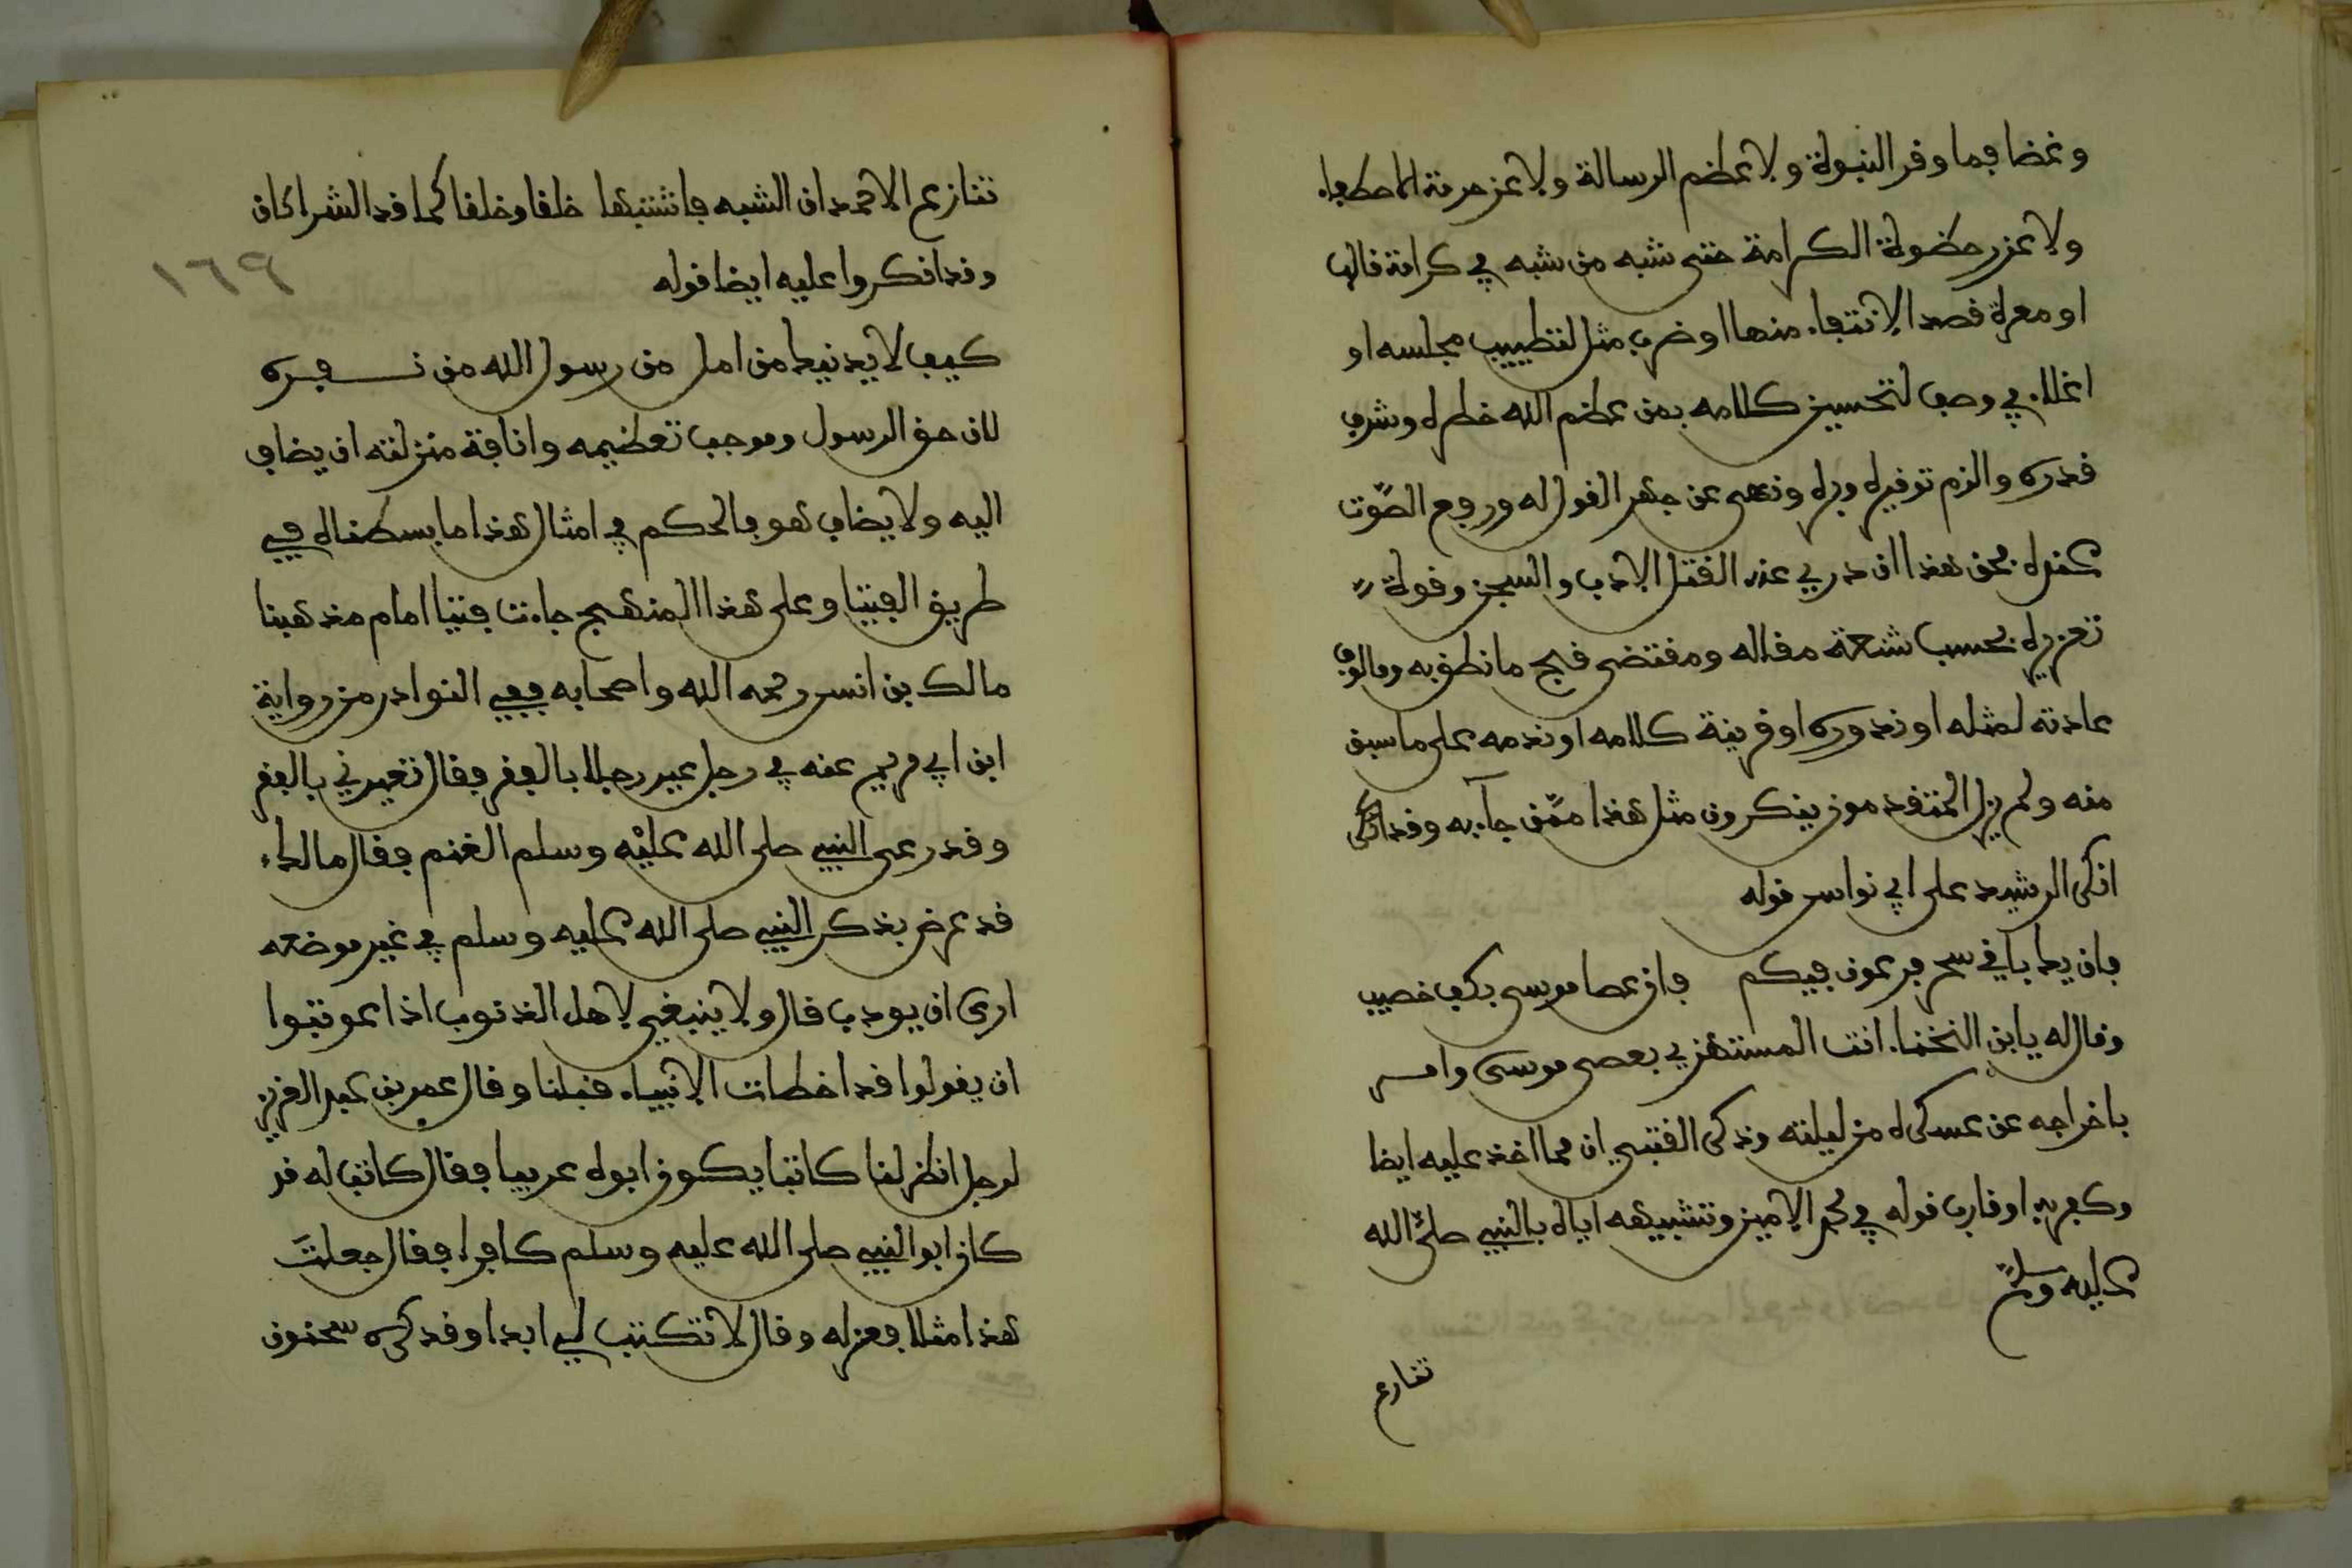 وغضا فما وقر النبوة ولا عظم الرسالة ولا عزر حرمة الاصطفاء
ولا عزز حظوة الكرامة حتى شبه من شبه في كرامة نالها
او معرة قصد الانتفاء منها او ضرب مثل لتطييب مجلسه او
اغلاء في وصف لتحسين كلامه بمن عظم الله خطره وشرف
قدره والزم توقيره وبره ونهى عن جهر القول له ورفع الصوت
عنده فحق هذا ان درئ عنه القتل الادب والسجن وقوة
تعزيره بحسب شنعة مقاله ومقتضى قبح ما نطق به ومالوف
عادته لمثله او ندوره او قرينة كلامه او ندمه على ما سبق
منه ولم يزل المتقدمون ينكرون مثل هذا ممن جاء به وقد انكر
انكر الرشيد على ابي نواس قوله
فان يك باقي سحر فرعون فيكم فان عصا موسى بكف خصيب
وقال له يا ابن اللخناء انت المستهزئ بعصى موسى وامر
باخراجه عن عسكره من ليلته وذكر القتبي ان مما اخذ عليه ايضا
وكفر به او قارب قوله في محمد الامين وتشبيهه اياه بالنبي صلى الله
عليه وسلم
تنازع
تنازع الاحمدان الشبه فاشتبها خلقا وخلقا كما قد الشراكان
وقد انكروا عليه ايضا قوله
كيف لا يدنيك من امل من رسول الله من نفره
لان حق الرسول وموجب تعظيمه وانافة منزلته ان يضاف
اليه ولا يضاف هو فالحكم في امثال هذا ما بسطناه في
طريق الفتيا وعلى هذا المنهج جاءت فتيا امام مذهبنا
مالك بن انس رحمه الله واصحابه ففي النوادر من رواية
ابن ابي مريم عنه في رجل عير رجلا بالفقر فقال تعيرني بالفقر
وقد رعى النبي صلى الله عليه وسلم الغنم فقال مالك
قد عرض بذكر النبي صلى الله عليه وسلم في غير موضعه
ارى ان يودب قال ولا ينبغي لاهل الذنوب اذا عوتبوا
ان يقولوا قد اخطات الانبياء قبلنا وقال عمر بن عبد العزيز
لرجل انظر لنا كاتبا يكون ابوه عربيا فقال كاتب له قد
كان ابو النبي صلى الله عليه وسلم كافرا فقال جعلت
هذا مثلا فعزله وقال لا تكتب لي ابدا وقد كره سحنون
١٦٩